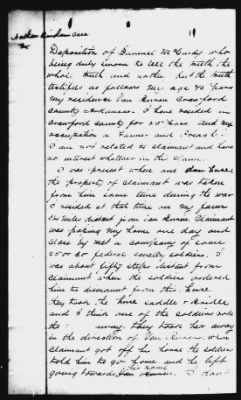 Deposition of Samuel McCurdy who
being duly sworn to tell the truth the
whole truth and nothing but the truth
testifies as follows My age 40 years
my residence Van Buren Crawford
County Arkansas. I have resided in
Crawford County for 20 years and my
occupation a Farmer and
I am not related to claimant and have
no interest whatever in the claim.
I was present when one
the property of claimant was taken
from him some time during the war
I resided at that time on my farm
miles distant from Van Buren. Claimant
was passing my home one day and
close by met a company of some
25 or 30 federal cavalry soldiers. I
was about fifty steps distant from
claimant when the soldiers ordered
him to dismount from this horse
they took the horse saddle & bridle
and I think one of the soldiers rode
away. they took her away
in the direction of Van Buren. when
claimant got off his horse the soldiers
told him to go home and he left
going towards his home. I don't